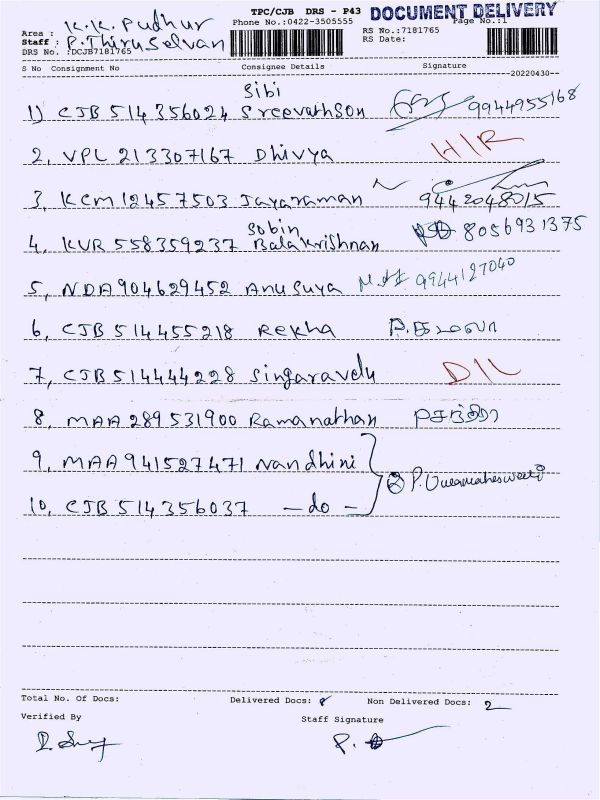 TPC/CJB DRS - P43 DOCUMENT DELIVERY
Area : K.K. Pudhur Phone No.:0422-3505555 Page No.:1
Staff : P. Thiru Selvan RS No.:7181765
DRS No. :DCJB7181765 RS Date:
S No Consignment No Consignee Details Signature
20220430
Sibi
1) CJB 514356024 Sreevathson 9944955168
2, VPL 213307167 Dhivya H/R
3, KCM 12457503 Jayaraman 9442048015
Sobin
4, KVR 558359237 Balakrishnan 8056931375
5, NDA 904629452 Anusuya 9944127040
6, CJB 514455218 Rekha
7, CJB 514444228 Singaravelu D/L
8, MAA 289531900 Ramanathan
9, MAA 941527471 Nandhini
P. Umamaheswari
10, CJB 514356037 - do -
Total No. Of Docs: Delivered Docs: 8 Non Delivered Docs: 2
Verified By Staff Signature